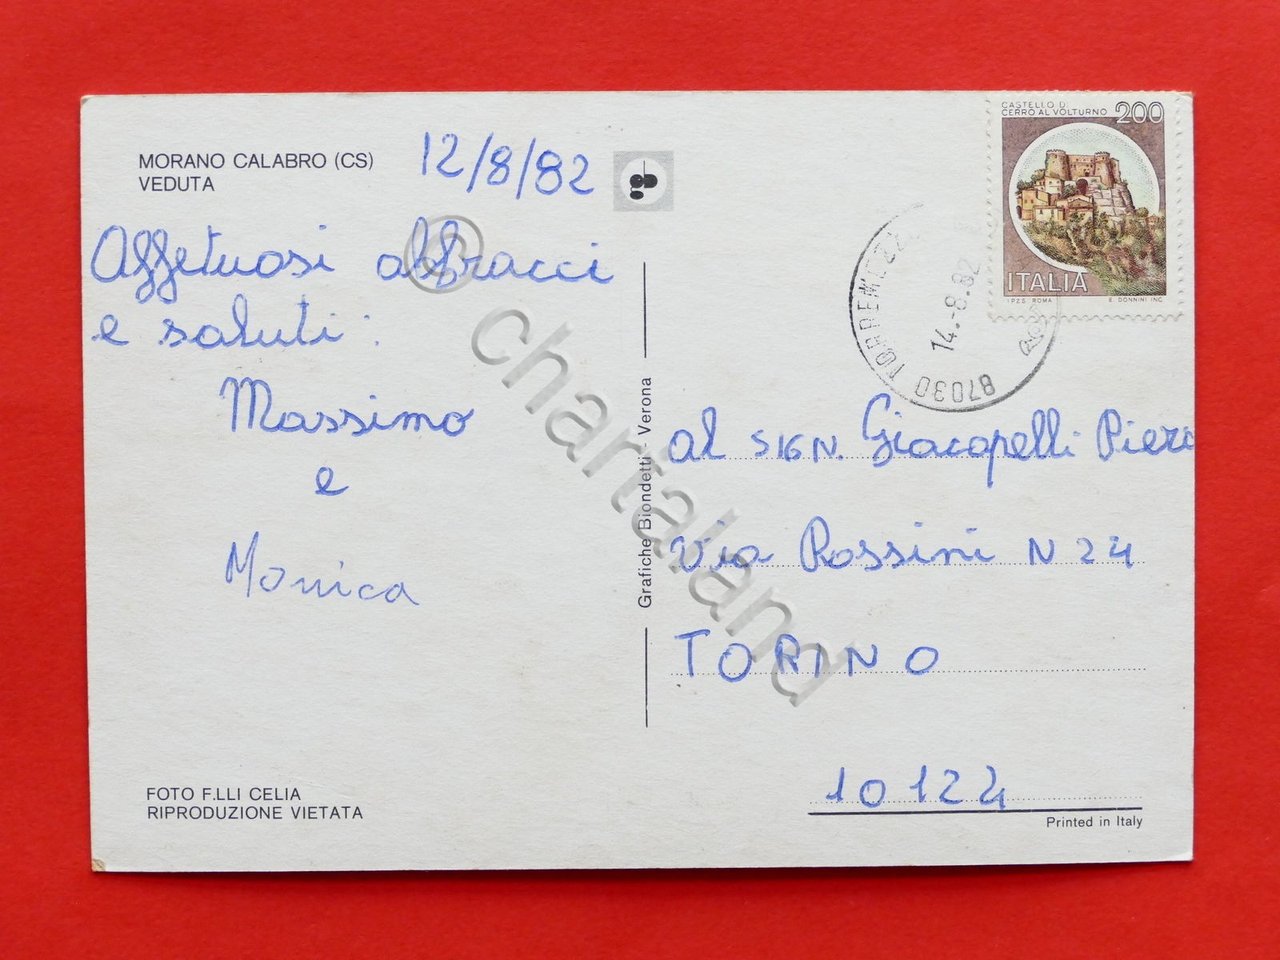 MORANO CALABRO (CS)
VEDUTA
12/8/82
Affetuosi abbracci
e saluti:
Massimo
e
Monica
FOTO F.LLI CELIA
RIPRODUZIONE VIETATA
Grafiche Biondetti - Verona
CASTELLO DI
CERRO AL VOLTURNO 200
ITALIA
I.P.Z.S. ROMA E. DONNINI INC.
87030 TORREMEZZO
14.-8.82
al SIGN. Giacopelli Piero
Via Rossini N 24
TORINO
10124
Printed in Italy
© chartaland